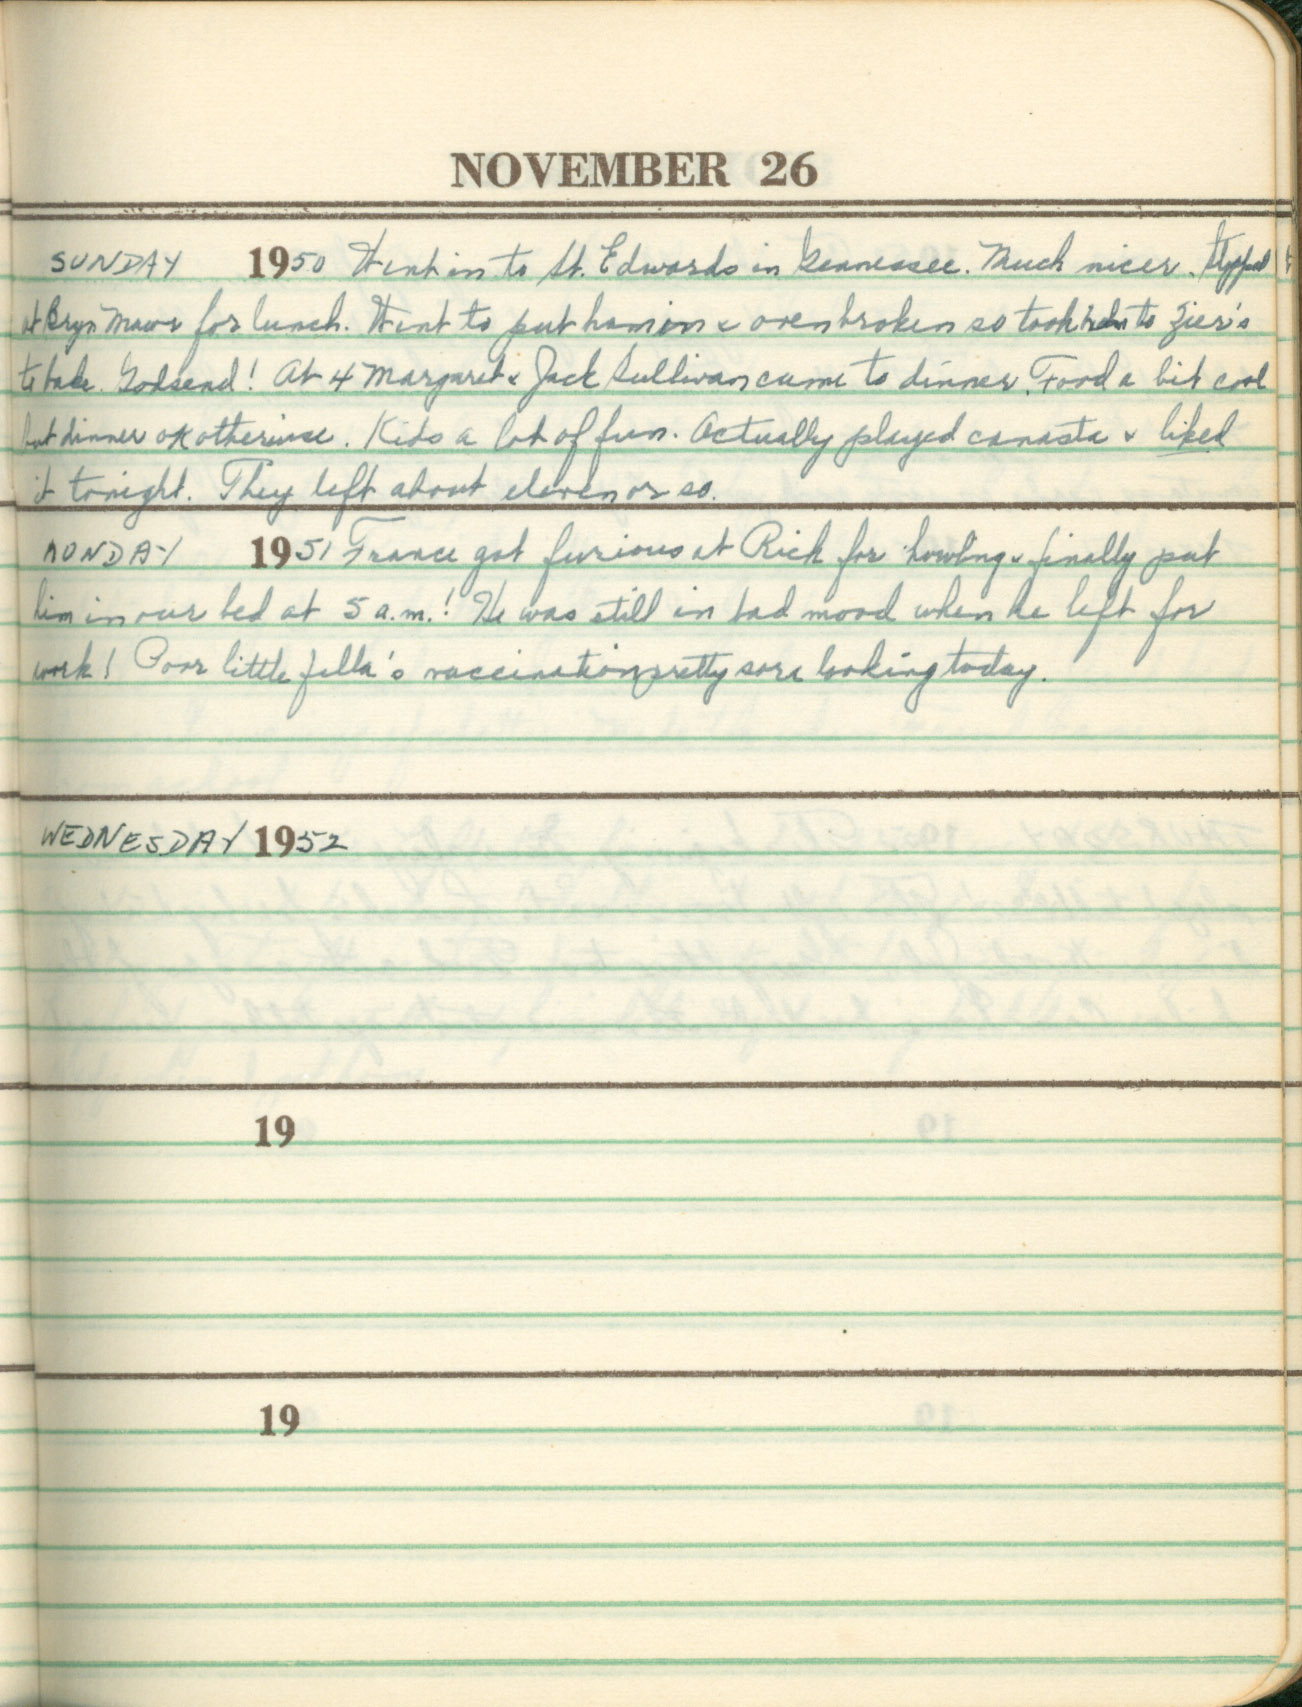 NOVEMBER 26
SUNDAY 1950 Went in to St. Edwards in Gennessee. Much nicer. Stopped
at Bryn Mawr for lunch. Went to put ham in & oven broken so took to Zier's
to bake. Godsend! At 4 Margaret & Jack Sullivan came to dinner. Food a bit cool
but dinner ok otherwise. Kids a lot of fun. Actually played canasta & liked
it tonight. They left about eleven or so.
MONDAY 1951 France got furious at Rick for howling & finally put
him in our bed at 5 a.m.! He was still in bad mood when he left for
work! Poor little fella's vaccination pretty sore looking today.
WEDNESDAY 1952
19
19